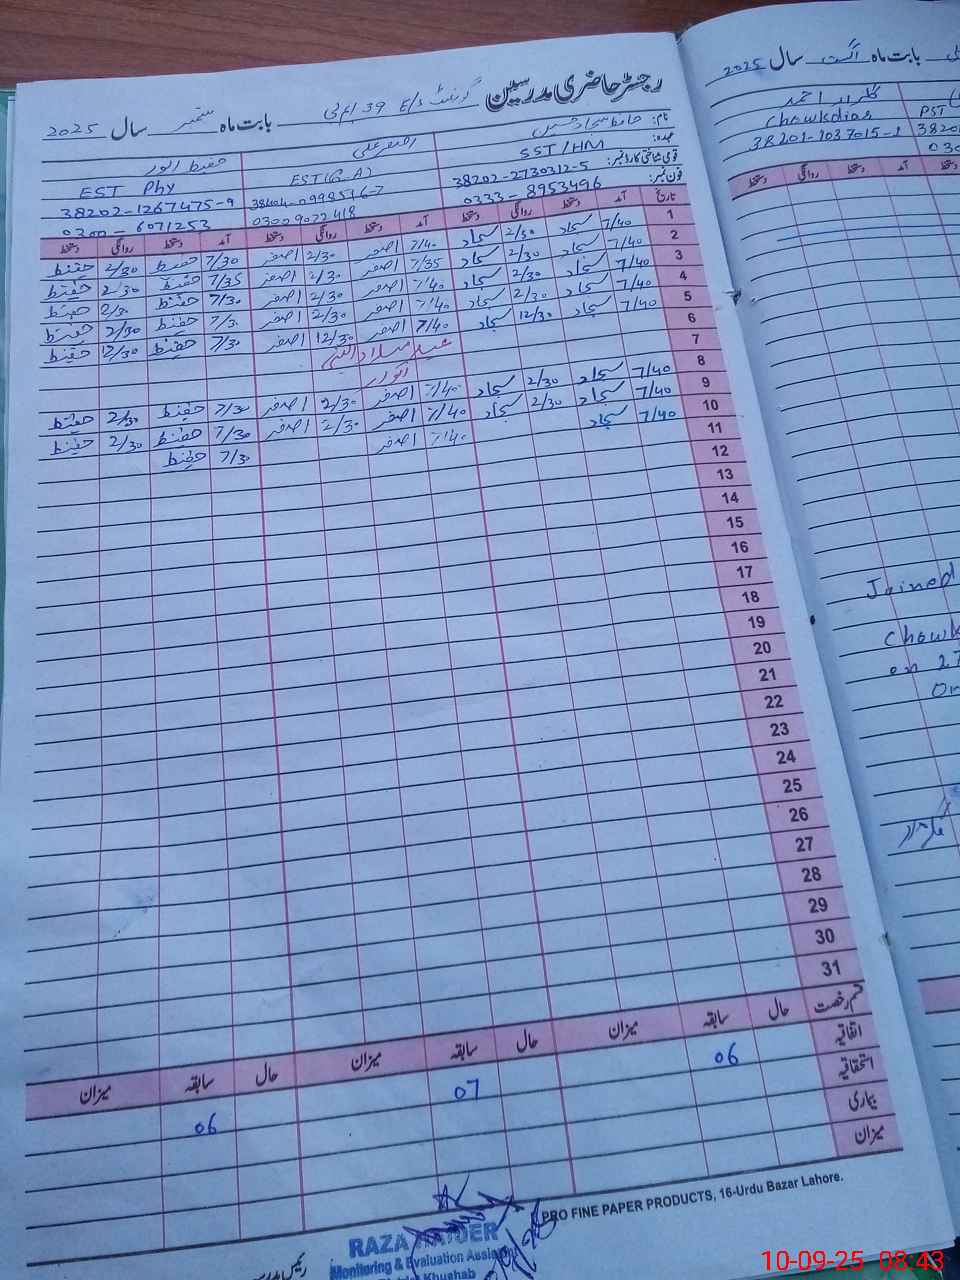 رجسٹر حاضری مدرسین گورنمنٹ E/S 39/ بابت ماہ ستمبر سال 2025
نام: حافظ سجاد حسین اصغر علی حفیظ انور
عہدہ: SST/HM EST(G-A) EST Phy
قومی شناختی کارڈ نمبر: 38202-2730312-5 38404-0998516-7 38202-1267475-9
فون نمبر: 0333-8953496 03009022418 0300-6071253
تاریخ آمد دستخط روانگی دستخط آمد دستخط روانگی دستخط آمد دستخط روانگی دستخط
1 7/40 سجاد 2/30 سجاد 7/40 اصغر 2/30 اصغر 7/30 حفیظ 2/30 حفیظ
2 7/40 سجاد 2/30 سجاد 7/35 اصغر 2/30 اصغر 7/35 حفیظ 2/30 حفیظ
3 7/40 سجاد 2/30 سجاد 7/40 اصغر 2/30 اصغر 7/30 حفیظ 2/30 حفیظ
4 7/40 سجاد 2/30 سجاد 7/40 اصغر 2/30 اصغر 7/30 حفیظ 2/30 حفیظ
5 7/40 سجاد 12/30 سجاد 7/40 اصغر 12/30 اصغر 7/30 حفیظ 12/30 حفیظ
6 عید میلاد النبی
7 اتوار
8 7/40 سجاد 2/30 سجاد 7/40 اصغر 2/30 اصغر 7/30 حفیظ 2/30 حفیظ
9 7/40 سجاد 2/30 سجاد 7/40 اصغر 2/30 اصغر 7/30 حفیظ 2/30 حفیظ
10 7/40 سجاد 7/40 اصغر 7/30 حفیظ
11
12
13
14
15
16
17
18
19
20
21
22
23
24
25
26
27
28
29
30
31
قسم رخصت حال سابقہ میزان حال سابقہ میزان حال سابقہ میزان
اتفاقیہ 06 07 06
استحقاقیہ
بیماری
میزان
PRO FINE PAPER PRODUCTS, 16-Urdu Bazar Lahore.
RAZA HAIDER
Monitoring & Evaluation Assistant
Khushab
بابت ماہ اگست سال 2025
گلزار احمد
Chowkdiar PST
38201-1037015-1 3820
030
روانگی دستخط آمد دستخط
Joined
Chowk
on 27
گلزار
10-09-25 08:43